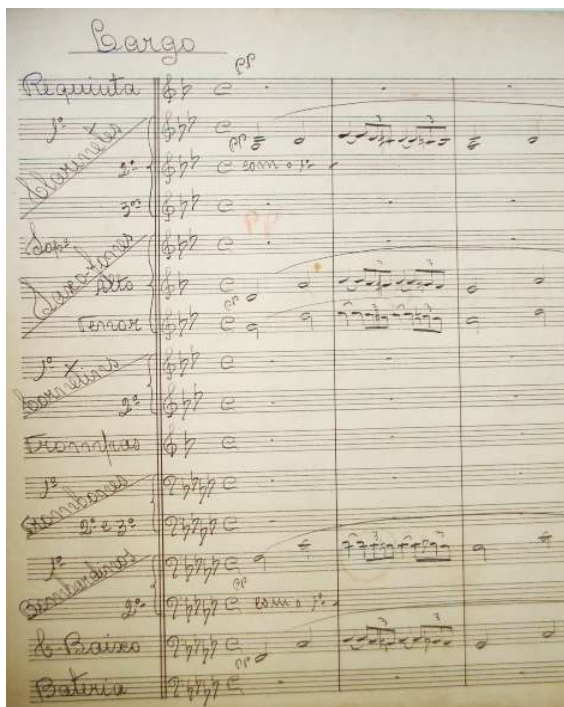 Largo
pp
Requinta
1º
pp
Clarinetes
2º com o 1º
3º
pp
Sopº
Saxofones
Alto
pp
Tenor
1º
Cornetins
2º
Trompas
1º
Trombones
2º e 3º
1º
Bombardinos
pp
2º com o 1º
C-Baixo
pp
Bateria